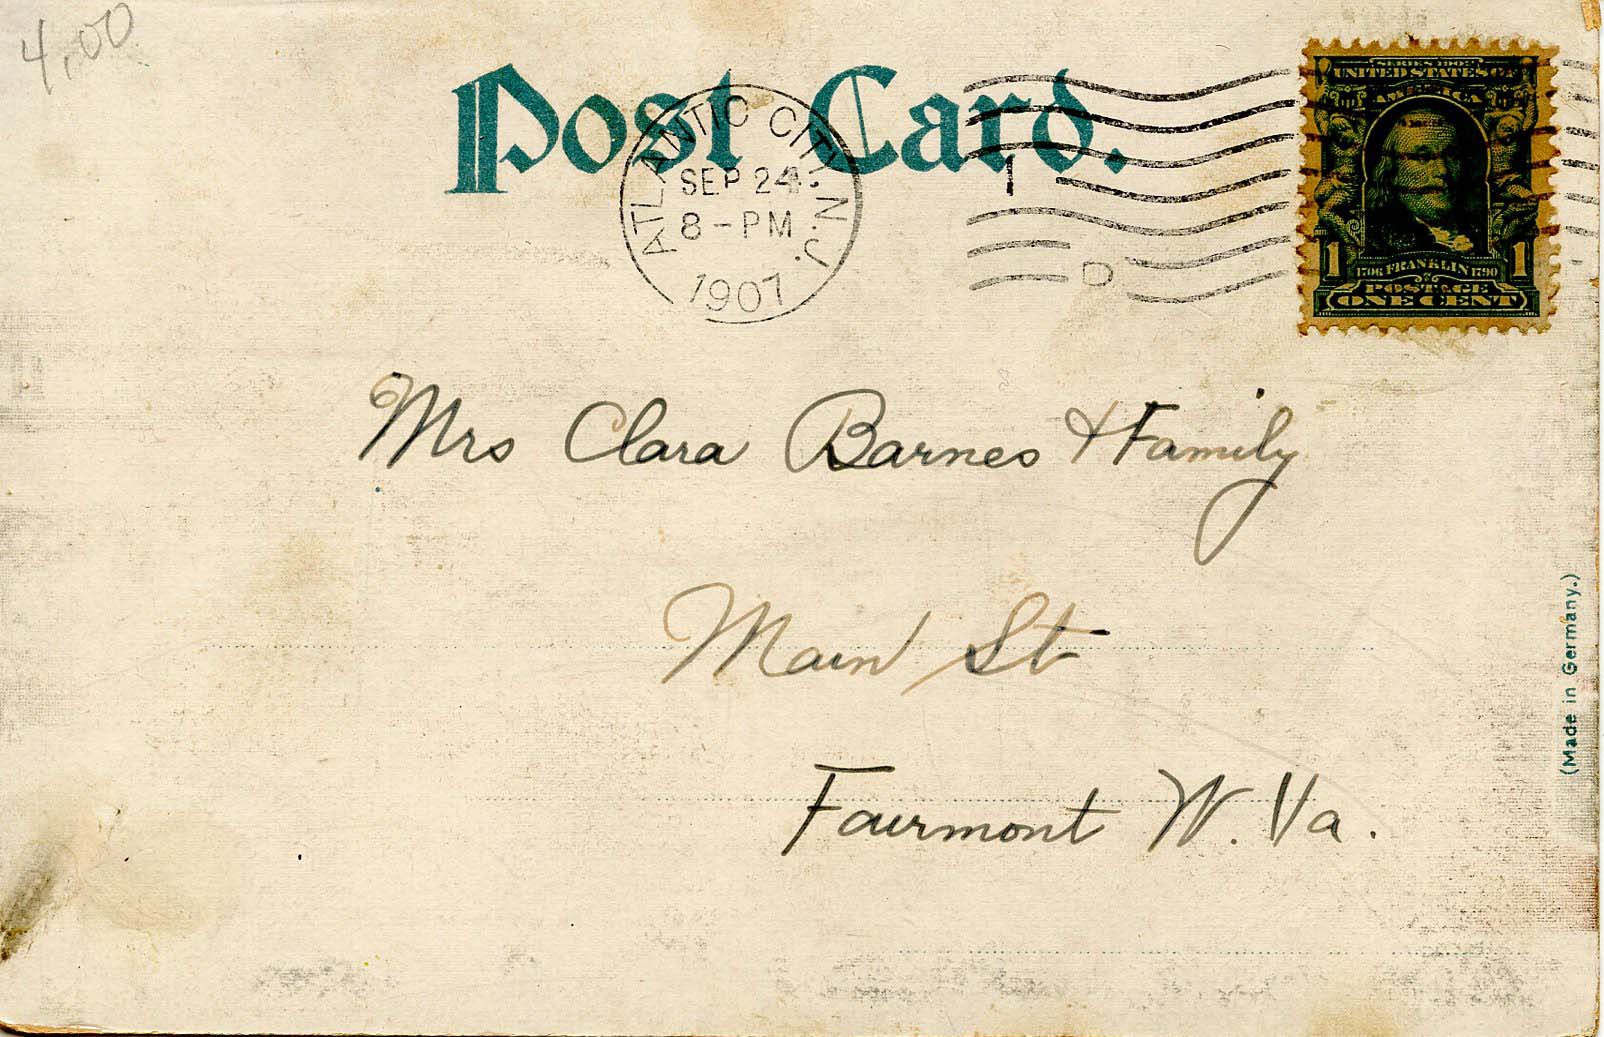 4.00
Post Card.
ATLANTIC CITY, N.J.
SEP 24
8-PM
1907
1
D
SERIES 1902
UNITED STATES OF
AMERICA
1 1
1706 FRANKLIN 1790
POSTAGE
ONE CENT
Mrs Clara Barnes & Family
Main St
Fairmont W. Va.
(Made in Germany.)